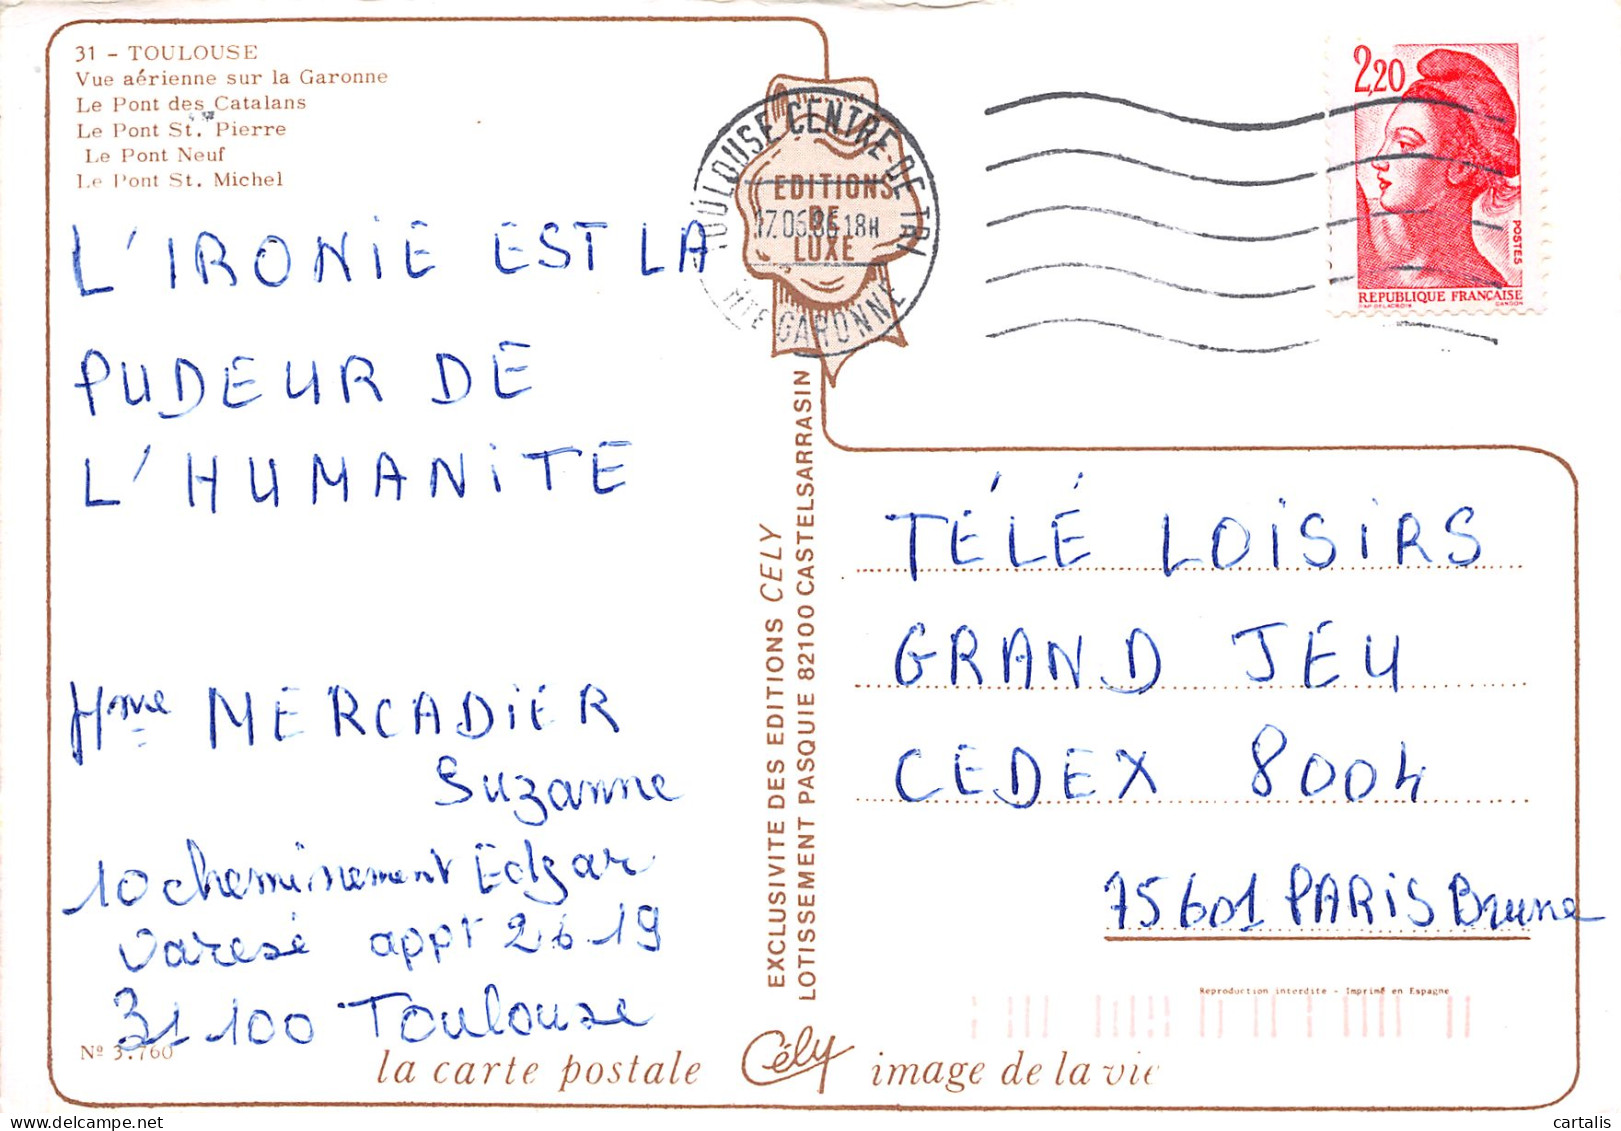 31 - TOULOUSE
Vue aérienne sur la Garonne
Le Pont des Catalans
Le Pont St. Pierre
Le Pont Neuf
Le Pont St. Michel
L'IRONIE EST LA
PUDEUR DE
L'HUMANITE
Mme MERCADIER
Suzanne
10 cheminement Edgar
Varese appt 2619
31100 Toulouse
Nº 3.760
TOULOUSE CENTRE DE TRI
17.06.86 18H
Hte GARONNE
EDITIONS
DE
LUXE
EXCLUSIVITE DES EDITIONS CELY
LOTISSEMENT PASQUIE 82100 CASTELSARRASIN
2,20
POSTES
REPUBLIQUE FRANÇAISE
D'AP. DELACROIX GANDON
TÉLÉ LOISIRS
GRAND JEU
CEDEX 8004
75601 PARIS Brune
Reproduction interdite - Imprimé en Espagne
la carte postale Cély image de la vie
cartalis